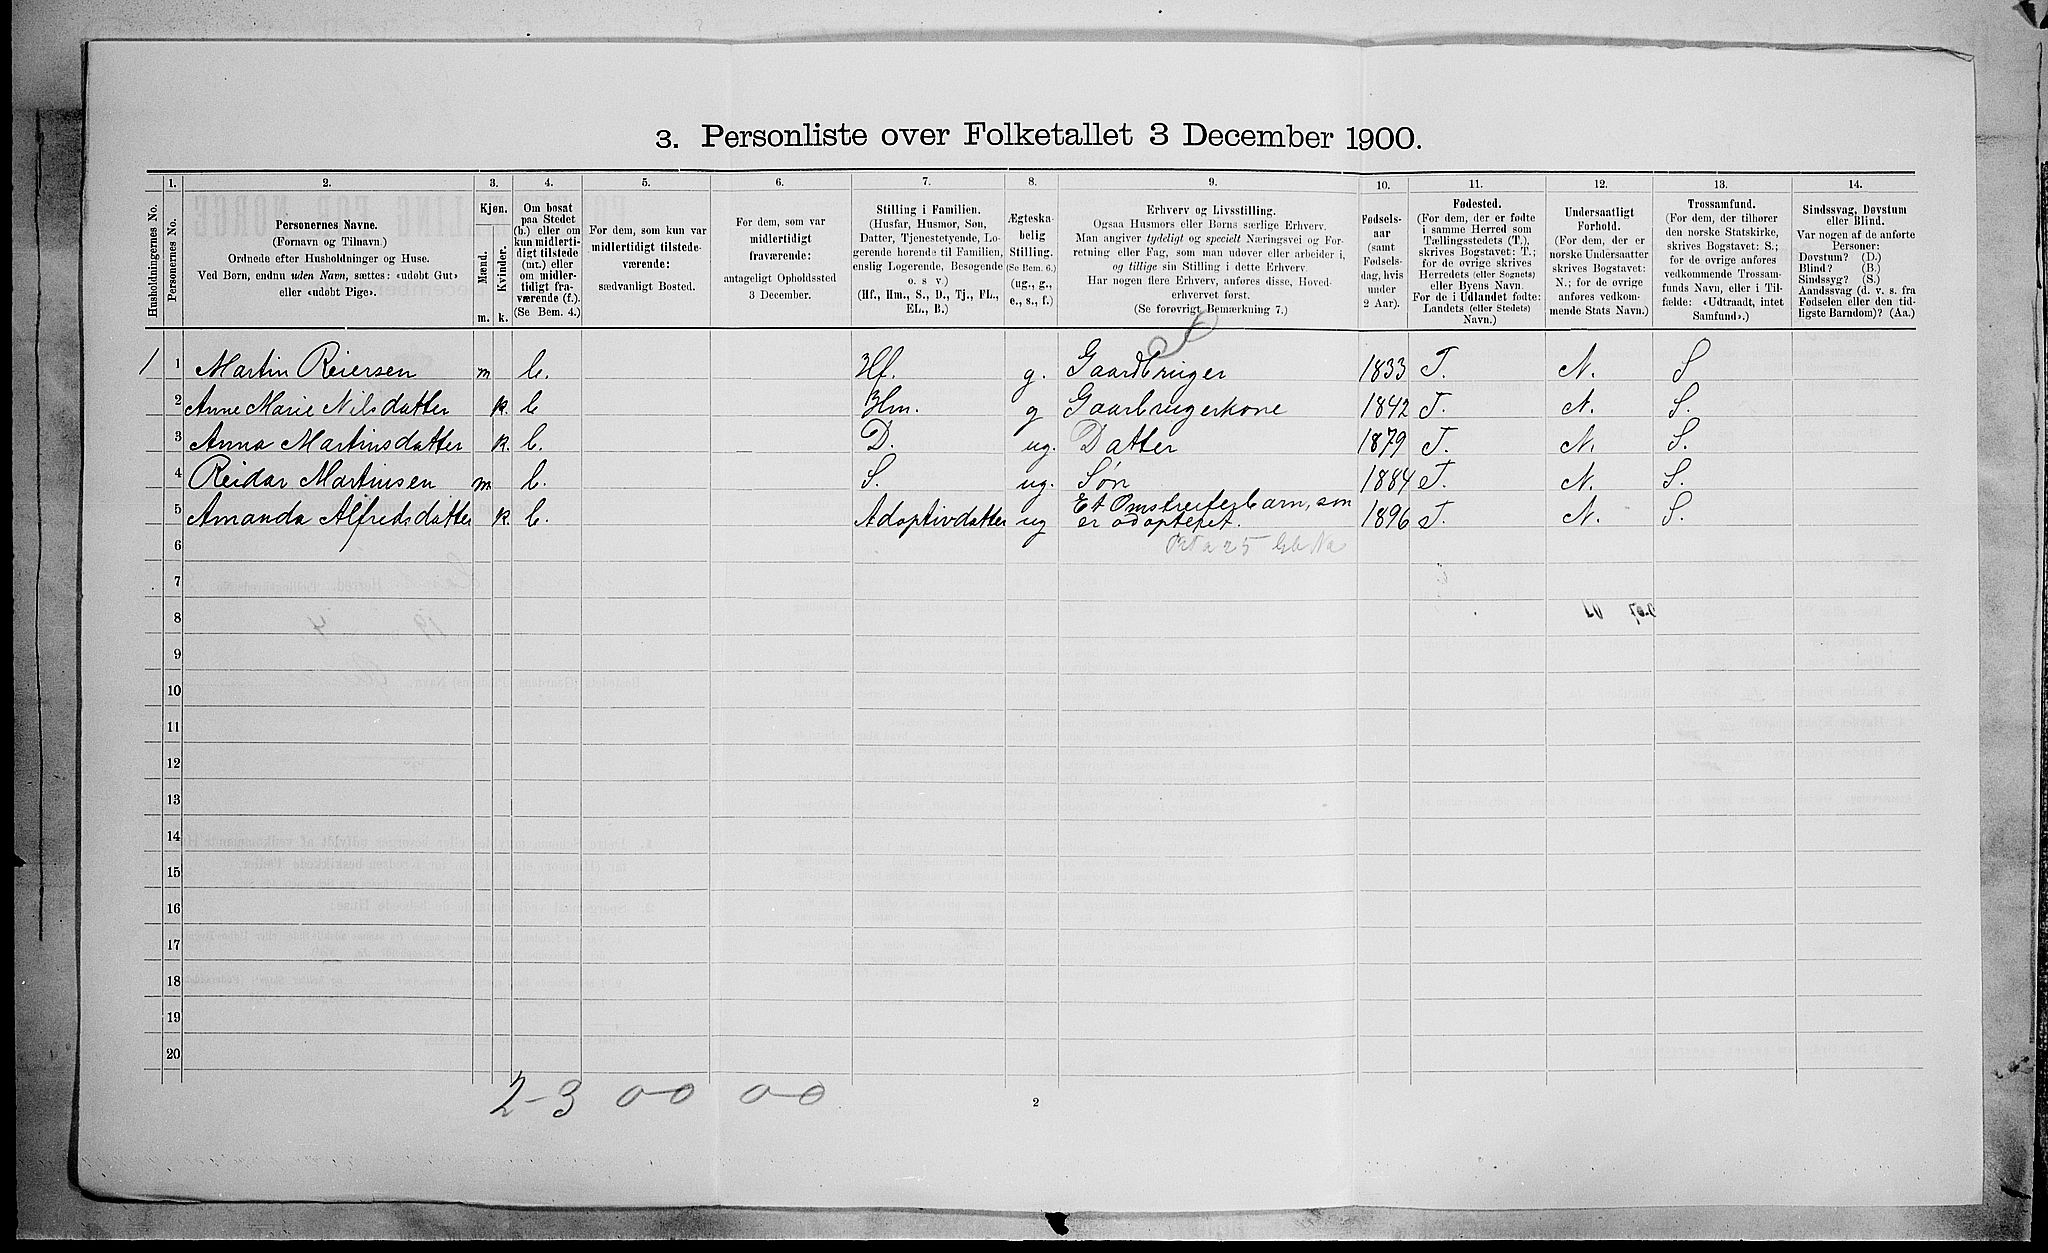 3. Personliste over Folketallet 3 December 1900.
1. 2. 3. 4. 5. 6. 7. 8. 9. 10. 11. 12. 13. 14.
Husholdningernes No.
Personernes No.
Personernes Navne.
(Fornavn og Tilnavn.)
Ordnede efter Husholdninger og Huse.
Ved Børn, endnu uden Navn, sættes: «udøbt Gut»
eller «udøbt Pige».
Kjøn.
Mænd.
Kvinder.
m. k.
Om bosat
paa Stedet
(b.) eller om
kun midlerti-
digt tilstede
(mt.) eller
om midler-
tidigt fra-
værende (f.).
(Se Bem. 4.)
For dem, som kun var
midlertidigt tilstede-
værende:
sædvanligt Bosted.
For dem, som var
midlertidigt
fraværende:
antageligt Opholdssted
3 December.
Stilling i Familien.
(Husfar, Husmor, Søn,
Datter, Tjenestetyende, Lo-
gerende hørende til Familien,
enslig Logerende, Besøgende
o. s v.)
(Hf., Hm., S., D., Tj., FL.,
EL., B.)
Ægteska-
belig
Stilling.
(Se Bem. 6.)
(ug., g.,
e., s., f.)
Erhverv og Livsstilling.
Ogsaa Husmors eller Børns særlige Erhverv.
Man angiver tydeligt og specielt Næringsvei og For-
retning eller Fag, som man udøver eller arbeider i,
og tillige sin Stilling i dette Erhverv.
Har nogen flere Erhverv, anføres disse, Hoved-
erhvervet først.
(Se forøvrigt Bemærkning 7.)
Fødsels-
aar
(samt
Fødsels-
dag, hvis
under
2 Aar).
Fødested.
(For dem, der er fødte
i samme Herred som
Tællingsstedets (T.),
skrives Bogstavet: T.;
for de øvrige skrives
Herredets (eller Sognets)
eller Byens Navn.
For de i Udlandet fødte:
Landets (eller Stedets)
Navn.)
Undersaatligt
Forhold.
(For dem, der er
norske Undersaatter
skrives Bogstavet:
N.; for de øvrige
anføres vedkom-
mende Stats Navn.)
Trossamfund.
(For dem, der tilhører
den norske Statskirke,
skrives Bogstavet: S.;
for de øvrige anføres
vedkommende Trossam-
funds Navn, eller i Til-
fælde: «Udtraadt, intet
Samfund».)
Sindssvag, Døvstum
eller Blind.
Var nogen af de anførte
Personer:
Døvstum? (D.)
Blind? (B.)
Sindssyg? (S.)
Aandssvag (d. v. s. fra
Fødselen eller den tid-
ligste Barndom)? (Aa.)
1 1 Martin Reiersen m b. Hf. g. Gaardbruger 1833 T. N. S
2 Anne Marie Nilsdatter k. b Hm. g Gaarbrugerkone 1842 T. N. S.
3 Anna Martinsdatter k. b. D. ug. Datter 1879 T. N. S.
4 Reidar Martinsen m b. S. ug. Søn 1884 T. N. S.
5 Amanda Alfredsdatter k. b. Adoptivdatter ug Et Omstreiferbarn, som
er adopteret. 1896 T. N. S.
6
7
8
9
10
11
12
13
14
15
16
17
18
19
20
2-3 0-0 0-0
2